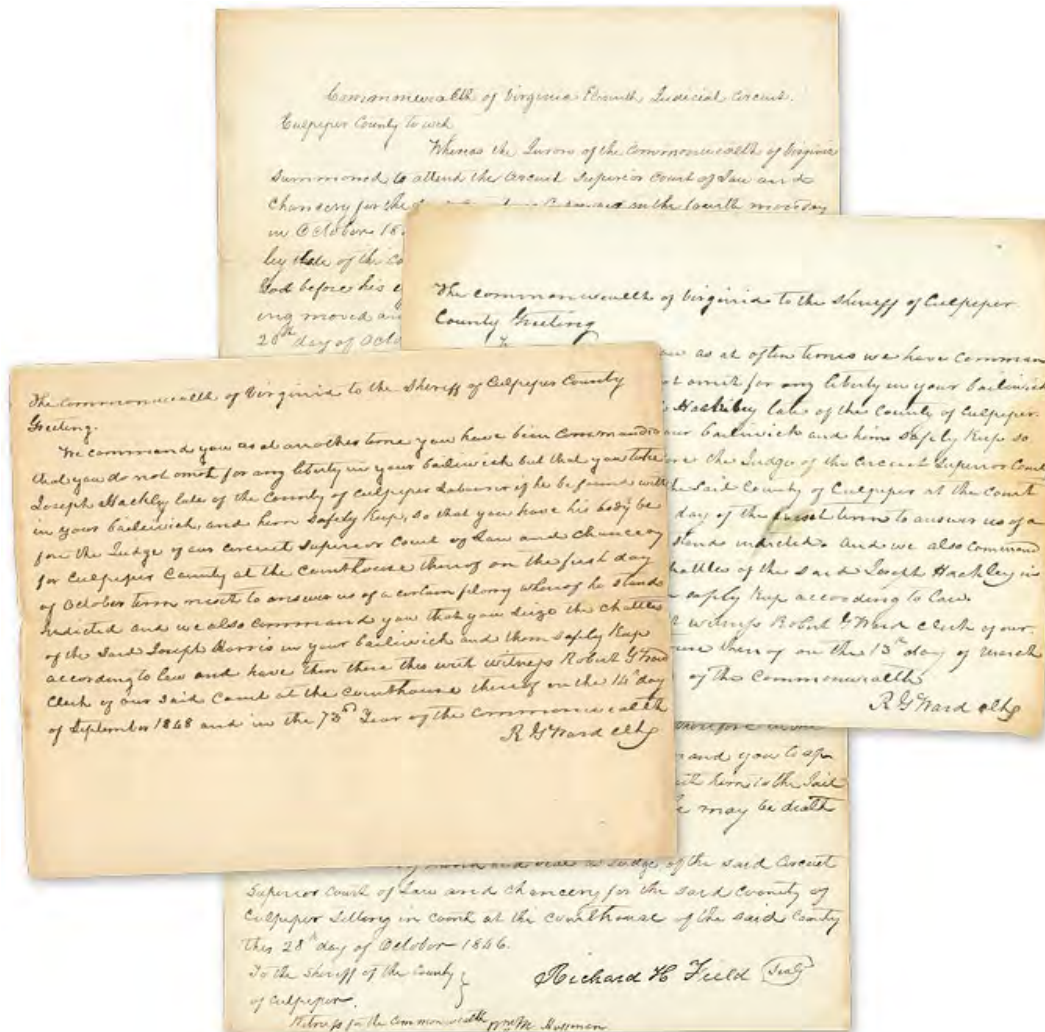 Commonwealth of Virginia Eleventh Judicial Circuit.
Culpeper County to wit
Whereas the Jurors of the Commonwealth of Virginia
summoned to attend the Circuit Superior Court of Law and
Chancery for the on the fourth monday
in October 18
by of the
God before his
ing moved
28th day of Octo
The Commonwealth of Virginia to the Sheriff of Culpeper
County Greeting
as at often times we have comman
omit for any liberty in your bailiwick
Hackley late of the County of Culpeper
bailiwick and him safely keep so
the Judge of the Circuit Superior Court
the said County of Culpeper at the Court
day of the first term to answer us of a
stands indicted. And we also command
chattles of the said Joseph Hackley in
safely keep according to law
witness Robert G Ward clerk of our
thereof on the 13th day of March
of the Commonwealth
R G Ward clk
The Commonwealth of Virginia to the Sheriff of Culpeper County
Greeting.
We command you as at another time you have been commanded
that you do not omit for any liberty in your bailiwick but that you take
Joseph Hackly late of the County of Culpeper Labourer if he be found with
in your bailiwick, and him safely keep, so that you have his body be
for the Judge of our Circuit Superior Court of Law and Chancery
for Culpeper County at the Courthouse thereof on the first day
of October term next to answer us of a certain felony whereof he stands
indicted and we also command you that you seize the chattles
of the said Joseph Harris in your bailiwick and them safely keep
according to law and have then there this writ witness Robert G Ward
Clerk of our said Court at the Courthouse thereof on the 14th day
of September 1848 and in the 73rd Year of the Commonwealth
R G Ward clk
and you to ap
him to the Jail
he may be dealth
hand and seal as Judge of the said Circuit
Superior Court of Law and Chancery for the said County of
Culpeper sitting in Court at the Courthouse of the said County
this 28th day of October 1846.
To the Sheriff of the County
of Culpeper.
Richard H Field Seal
Witness for the Commonwealth Wm M